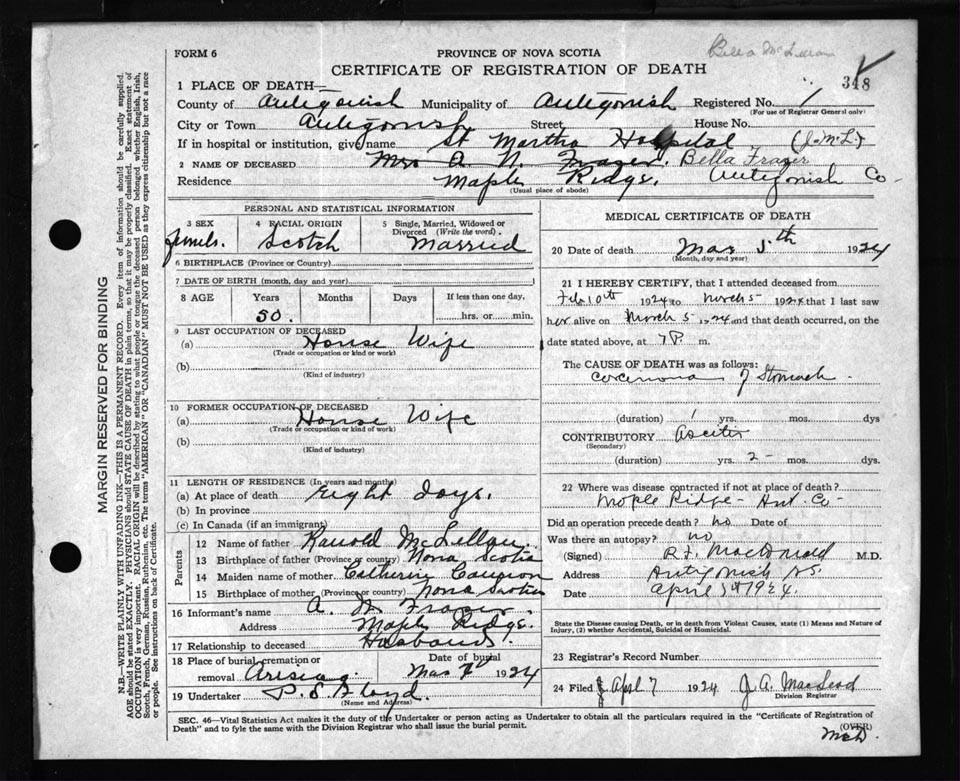 Bella McLellan
FORM 6
PROVINCE OF NOVA SCOTIA
CERTIFICATE OF REGISTRATION OF DEATH
348
1 PLACE OF DEATH—
County of Antigonish Municipality of Antigonish Registered No. 1
(For use of Registrar General only)
City or Town Antigonish Street House No.
If in hospital or institution, give name St Martha Hospital (J.McL.)
2 NAME OF DECEASED Mrs A. W. Frazer. Bella Frazer
Residence Maple Ridge. Antigonish Co-
(Usual place of abode)
PERSONAL AND STATISTICAL INFORMATION
3 SEX 4 RACIAL ORIGIN 5 Single, Married, Widowed or Divorced (Write the word).
female. Scotch Married
6 BIRTHPLACE (Province or Country)
7 DATE OF BIRTH (month, day, and year)
8 AGE Years Months Days If less than one day,
50. hrs. or min.
9 LAST OCCUPATION OF DECEASED
(a) House Wife
(Trade or occupation or kind or work)
(b)
(Kind of industry)
10 FORMER OCCUPATION OF DECEASED
(a) House Wife
(Trade or occupation or kind of work)
(b)
(Kind of industry)
11 LENGTH OF RESIDENCE (In years and months)
(a) At place of death Eight days.
(b) In province
(c) In Canada (if an immigrant)
Parents
12 Name of father Ranold McLellan.
13 Birthplace of father (Province or country) Nova Scotia
14 Maiden name of mother Catherine Cameron
15 Birthplace of mother (Province or country) Nova Scotia
16 Informant's name A. W. Frazer.
Address Maple Ridge.
17 Relationship to deceased Husband.
18 Place of burial, cremation or removal Arisaig. Date of burial Mar 7 1924
19 Undertaker P.S. Floyd.
(Name and Address)
MEDICAL CERTIFICATE OF DEATH
20 Date of death Mar 5th 1924
(Month, day and year)
21 I HEREBY CERTIFY, that I attended deceased from
Feb 10th 1924 to March 5 1924 that I last saw
her alive on March 5 1924 and that death occurred, on the
date stated above, at 7 P. m.
The CAUSE OF DEATH was as follows:
carcinoma of Stomach
(duration) 1 yrs. mos. dys
CONTRIBUTORY Ascites
(Secondary)
(duration) yrs. 2 - mos. dys.
22 Where was disease contracted if not at place of death?
Maple Ridge - Ant. Co-
Did an operation precede death? no Date of
Was there an autopsy? no
(Signed) R.F. MacDonald M.D.
Address Antigonish N.S.
April 5th 1924.
State the Disease causing Death, or in death from Violent Causes, state (1) Means and Nature of
Injury, (2) whether Accidental, Suicidal or Homicidal.
23 Registrar's Record Number
24 Filed April 7 1924 J. A. MacLeod
Division Registrar
SEC. 46—Vital Statistics Act makes it the duty of the Undertaker or person acting as Undertaker to obtain all the particulars required in the "Certificate of Registration of
Death" and to fyle the same with the Division Registrar who shall issue the burial permit.
(OVER)
McD.
MARGIN RESERVED FOR BINDING
N.B.—WRITE PLAINLY WITH UNFADING INK—THIS IS A PERMANENT RECORD. Every item of information should be carefully supplied.
AGE should be stated EXACTLY. PHYSICIANS should STATE CAUSE OF DEATH in plain terms, so that it may be properly classified. Exact statement of
OCCUPATION is very important. RACIAL ORIGIN will be described by stating to what people or tongue the deceased person belonged whether English, Irish,
Scotch, French, German, Russian, Ruthenian, etc. The terms "AMERICAN" OR "CANADIAN" MUST NOT BE USED as they express citizenship but not a race
or people. See instructions on back of Certificate.